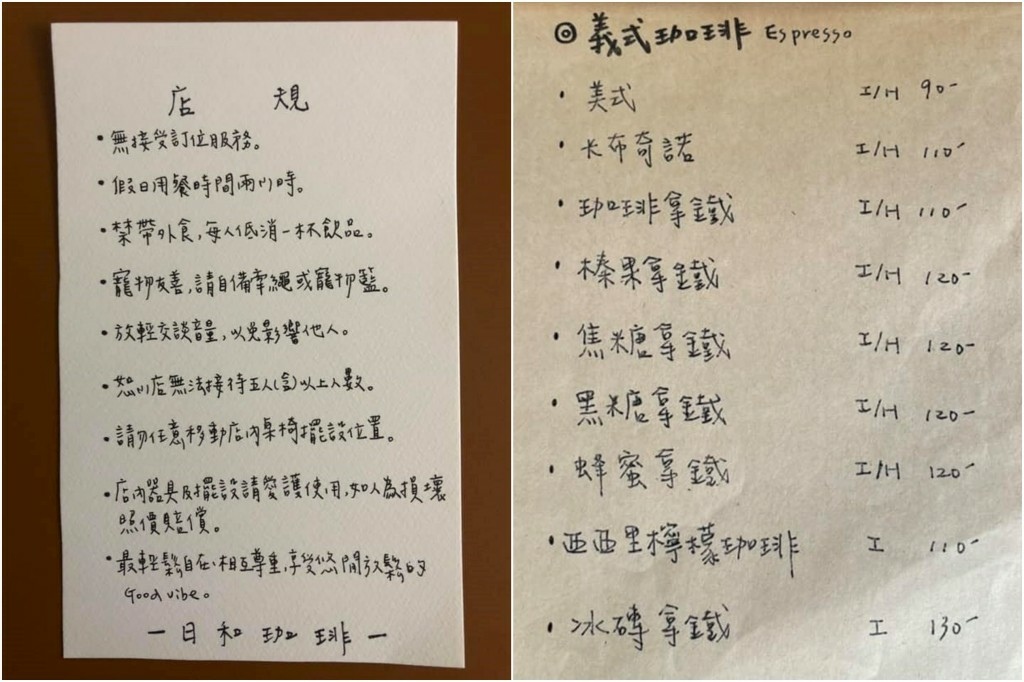 店 規
•無接受訂位服務。
•假日用餐時間兩小時。
•禁帶外食,每人低消一杯飲品。
•寵物友善,請自備牽繩或寵物籃。
•放輕交談音量,以免影響他人。
•恕小店無法接待五人(含)以上人數。
•請勿任意移動店內桌椅擺設位置。
•店內器具及擺設請愛護使用,如人為損壞
照價賠償。
•最輕鬆自在、相互尊重,享受悠閒放鬆的
Good vibe。
— 日 和 珈 琲 —
◎ 義式珈琲 Espresso
• 美式 I/H 90-
• 卡布奇諾 I/H 110-
• 珈琲拿鐵 I/H 110-
• 榛果拿鐵 I/H 120-
• 焦糖拿鐵 I/H 120-
• 黑糖拿鐵 I/H 120-
• 蜂蜜拿鐵 I/H 120-
• 西西里檸檬珈琲 I 110-
• 冰磚拿鐵 I 130-